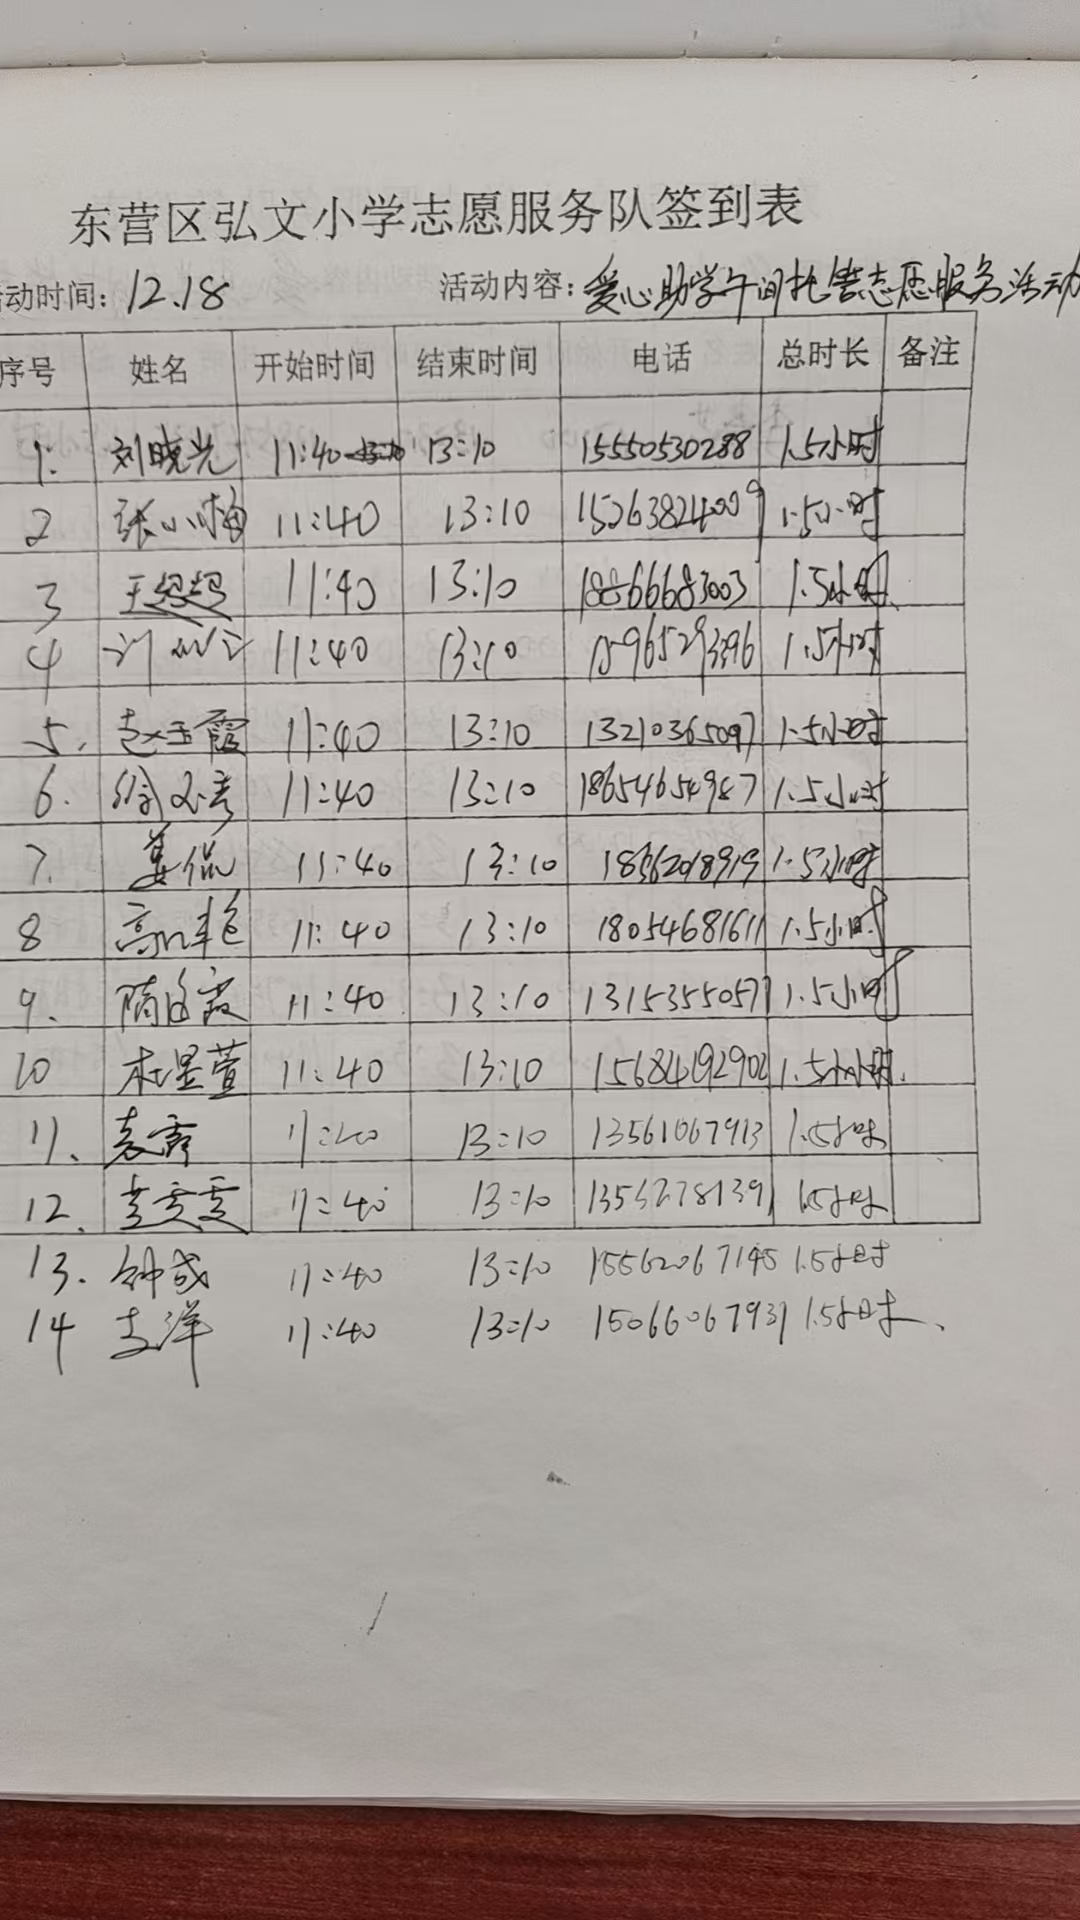 东营区弘文小学志愿服务队签到表
动时间: 12.18 活动内容: 爱心助学午间托管志愿服务活动
序号 姓名 开始时间 结束时间 电话 总时长 备注
1. 刘晓光 11:40 13:10 15550530288 1.5小时
2 张小梅 11:40 13:10 15263824009 1.5小时
3 王 11:40 13:10 18866683003 1.5小时.
4 11:40 13:10 1.5小时
5. 赵玉霞 11:40 13:10 13210365097 1.5小时
6. 徐 11:40 13:10 18654654987 1.5小时
7. 姜侃 11:40 13:10 1.5小时
8 高 11:40 13:10 18054681611 1.5小时
9. 隋海霞 11:40 13:10 13153550577 1.5小时
10 杜星萱 11:40 13:10 15684192902 1.5小时.
11. 袁霞 11:40 13:10 13561067913 1.5小时
12. 11:40 13:10 1.5小时
13. 钟成 11:40 13:10 15562067145 1.5小时
14 支洋 11:40 13:10 15066067931 1.5小时.